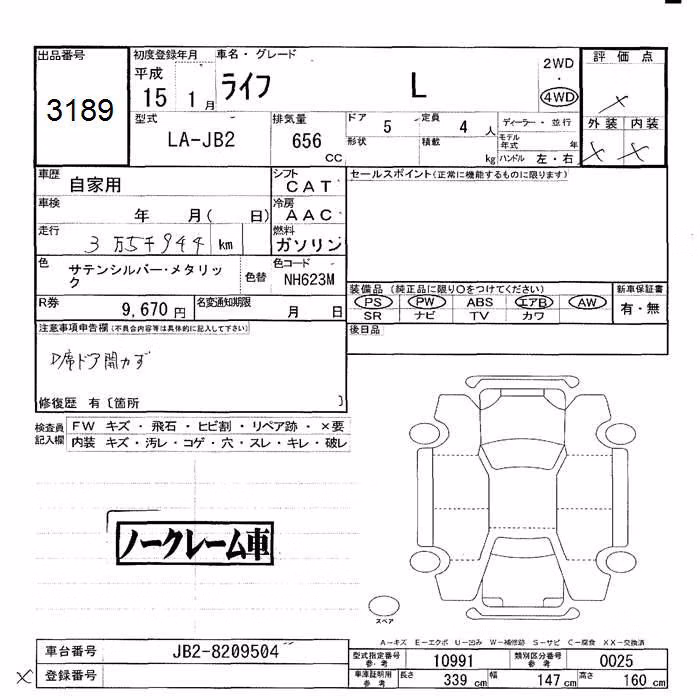 出品番号
3189
初度登録年月
平成
15 1月
車名・グレード
ライフ L
2WD
・
4WD
評価点
×
外装 内装
× ×
型式
LA-JB2
排気量
656
CC
ドア 5
定員 4 人
形状
積載 kg
ディーラー・並行
モデル年式 年
ハンドル 左・右
車歴 自家用
シフト
CAT
車検 年 月( 日)
冷房
AAC
走行 3万5千944 km
燃料
ガソリン
色 サテンシルバー・メタリック
色替
色コード
NH623M
R券 9,670円
名変通知期限 月 日
セールスポイント(正常に機能するものに限ります)
装備品 (純正品に限り○をつけてください)
PS PW ABS エアB AW
SR ナビ TV カワ
新車保証書
有・無
後日品
注意事項申告欄(不具合内容等は具体的に記入して下さい)
D席ドア開カず
修復歴 有〔箇所 〕
検査員記入欄
FW キズ・飛石・ヒビ割・リペア跡・×要
内装 キズ・汚レ・コゲ・穴・スレ・キレ・破レ
ノークレーム車
スペア
A-キズ E-エクボ U-凹み W-補修跡 S-サビ C-腐食 XX-交換済
車台番号 JB2-8209504
× 登録番号
型式指定番号 参考 10991
類別区分番号 参考 0025
車庫証明用 参考
長さ 339 cm
幅 147 cm
高さ 160 cm